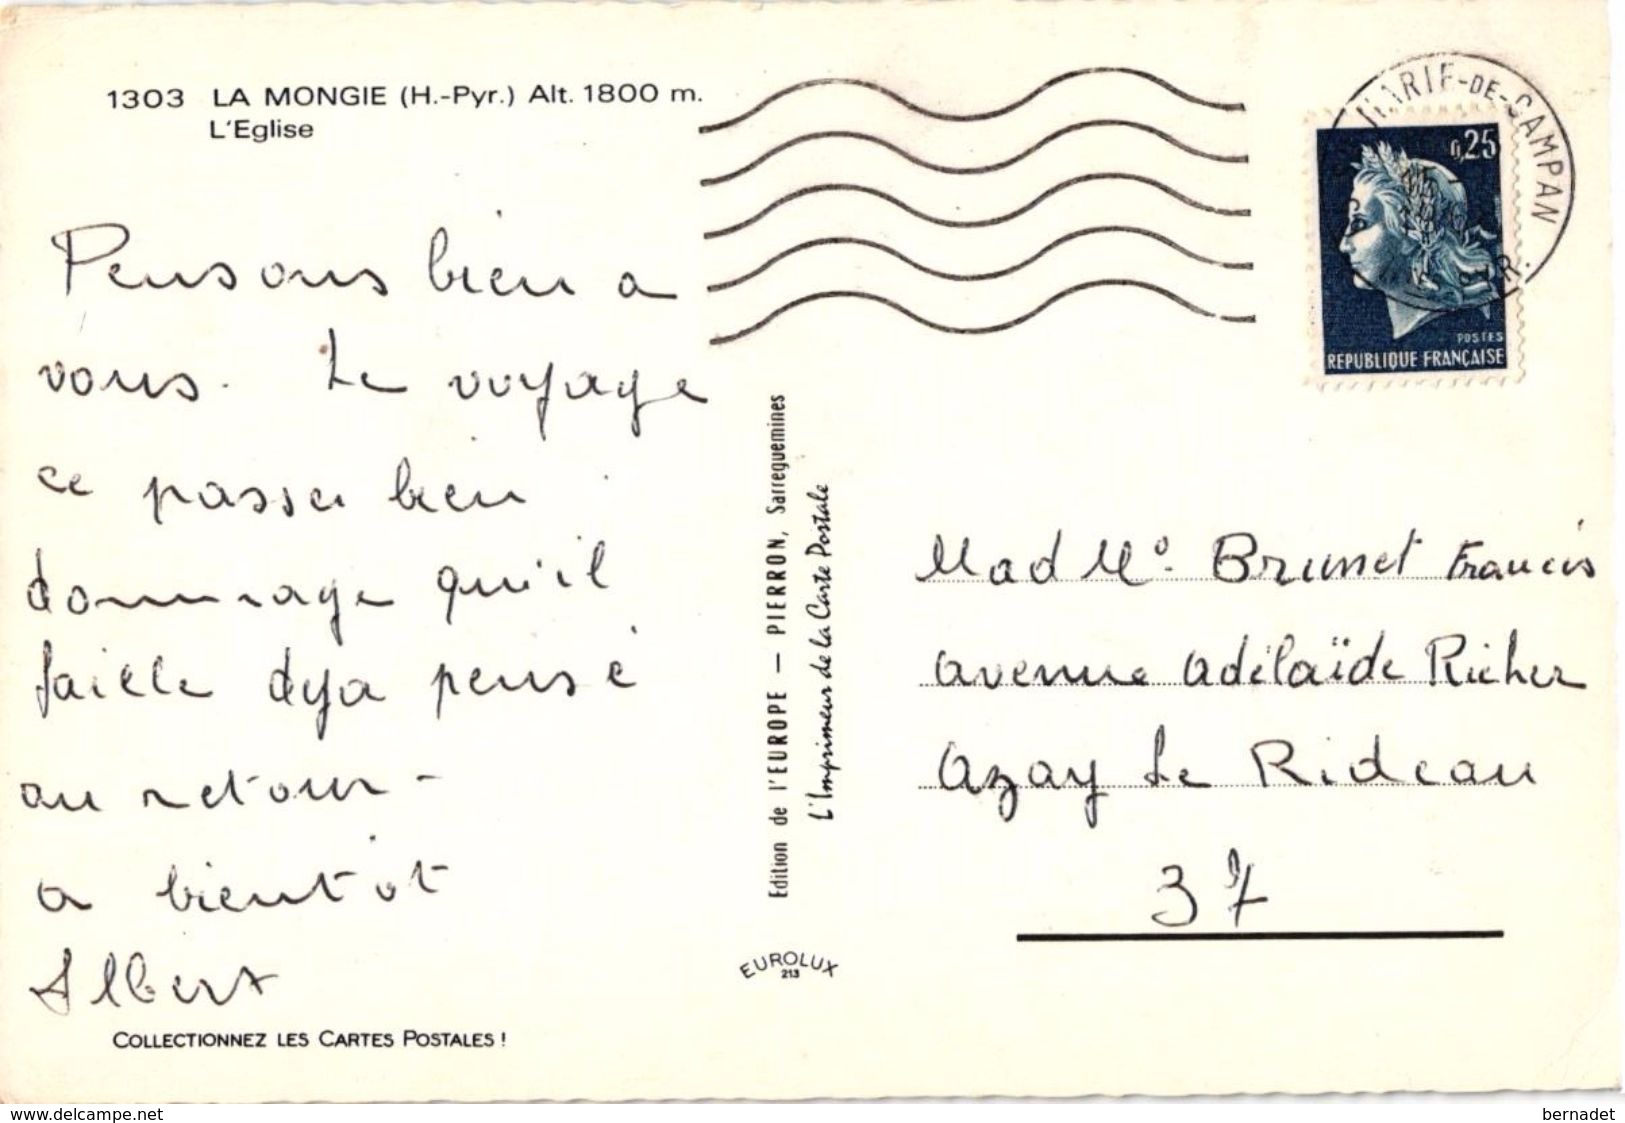 1303 LA MONGIE (H.-Pyr.) Alt. 1800 m.
L'Eglise
Pensons bien a
vous. Le voyage
ce passe bien
dommage qu'il
faille deja pensé
au retour -
a bientot
Albert
COLLECTIONNEZ LES CARTES POSTALES !
Edition de l'EUROPE — PIERRON, Sarreguemines
L'Imprimeur de la Carte Postale
EUROLUX
213
MARIE-DE-CAMPAN
0,25
POSTES
REPUBLIQUE FRANÇAISE
Mad Mº. Brunet Francis
avenue Adélaïde Richer
Azay Le Rideau
37
www.delcampe.net
bernadet